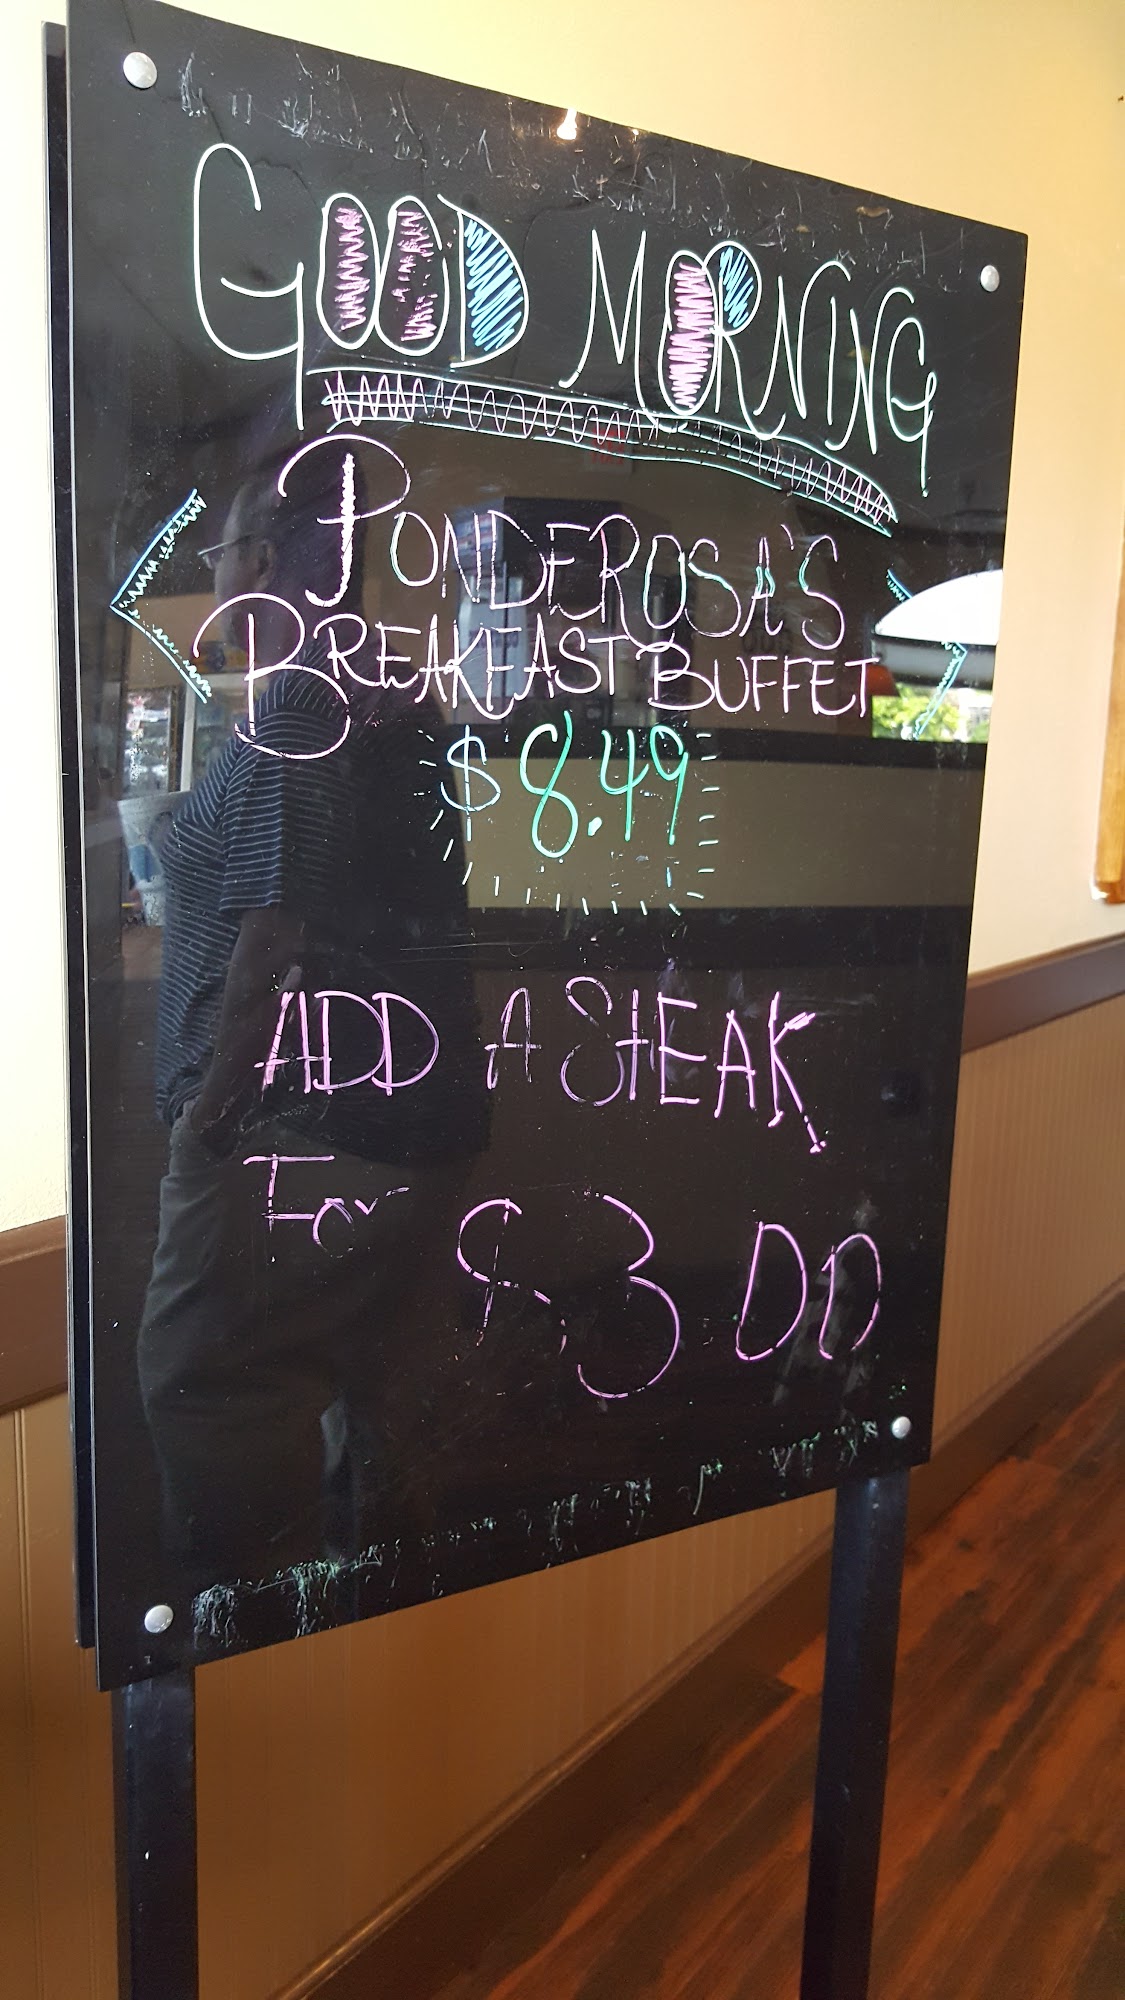 GOOD MORNING
PONDEROSA'S
BREAKFAST BUFFET
$8.49
ADD A STEAK
For $3.00